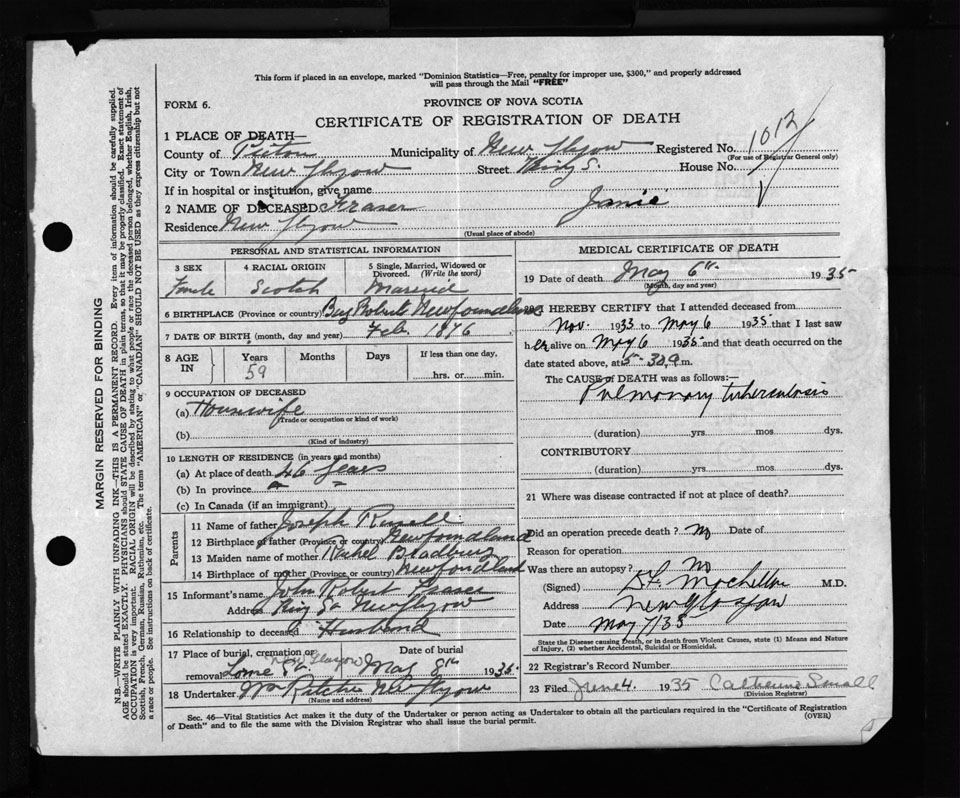 This form if placed in an envelope, marked "Dominion Statistics—Free, penalty for improper use, $300," and properly addressed
will pass through the Mail "FREE"
FORM 6.
PROVINCE OF NOVA SCOTIA
CERTIFICATE OF REGISTRATION OF DEATH
1012
1 PLACE OF DEATH—
County of Pictou Municipality of New Glasgow Registered No.
(For use of Registrar General only)
City or Town New Glasgow Street King S. House No.
If in hospital or institution, give name
2 NAME OF DECEASED Fraser Janie
Residence New Glasgow
(Usual place of abode)
PERSONAL AND STATISTICAL INFORMATION
3 SEX 4 RACIAL ORIGIN 5 Single, Married, Widowed or Divorced. (Write the word)
Female Scotch Married
6 BIRTHPLACE (Province or country) Bay Roberts Newfoundland
7 DATE OF BIRTH (month, day and year) Feb. 1876
8 AGE IN Years Months Days If less than one day,
59 hrs. or min.
9 OCCUPATION OF DECEASED
(a) Housewife
(Trade or occupation or kind of work)
(b)
(Kind of industry)
10 LENGTH OF RESIDENCE (in years and months)
(a) At place of death 46 years
(b) In province " "
(c) In Canada (if an immigrant)
Parents
11 Name of father Joseph Russell
12 Birthplace of father (Province or country) Newfoundland
13 Maiden name of mother Rachel Bradbury
14 Birthplace of mother (Province or country) Newfoundland
15 Informant's name John Robert Fraser
Address King St New Glasgow
16 Relationship to deceased Husband
17 Place of burial, cremation or removal Date of burial
New Glasgow
Lorne St. May 8th 1935
18 Undertaker Wm Ritchie New Glasgow
(Name and address)
MEDICAL CERTIFICATE OF DEATH
19 Date of death May 6th 1935
(Month, day and year)
I HEREBY CERTIFY that I attended deceased from
Nov. 1933 to May 6 1935 that I last saw
her alive on May 6 1935 and that death occurred on the
date stated above, at 5-30 a m.
The CAUSE of DEATH was as follows:—
Pulmonary tuberculosis
(duration) yrs. mos. dys.
CONTRIBUTORY
(duration) yrs. mos. dys.
21 Where was disease contracted if not at place of death?
Did an operation precede death? No Date of
Reason for operation
Was there an autopsy? No
(Signed) M.D.
Address New Glasgow
Date May 7/35
State the Disease causing Death, or in death from Violent Causes, state (1) Means and Nature
of Injury, (2) whether Accidental, Suicidal or Homicidal.
22 Registrar's Record Number
23 Filed June 4. 1935 Catherine Small
(Division Registrar)
Sec. 46—Vital Statistics Act makes it the duty of the Undertaker or person acting as Undertaker to obtain all the particulars required in the "Certificate of Registration
of Death" and to file the same with the Division Registrar who shall issue the burial permit. (OVER)
MARGIN RESERVED FOR BINDING
N.B.—WRITE PLAINLY WITH UNFADING INK—THIS IS A PERMANENT RECORD. Every item of information should be carefully supplied.
AGE should be stated EXACTLY. PHYSICIANS should STATE CAUSE OF DEATH in plain terms, so that it may be properly classified. Exact statement of
OCCUPATION is very important. RACIAL ORIGIN will be described by stating to what people or race the deceased person belonged, whether English, Irish,
Scottish, French, German, Russian, Ruthenian, etc. The terms "AMERICAN" or "CANADIAN" SHOULD NOT BE USED as they express citizenship but not
a race or people. See instructions on back of certificate.